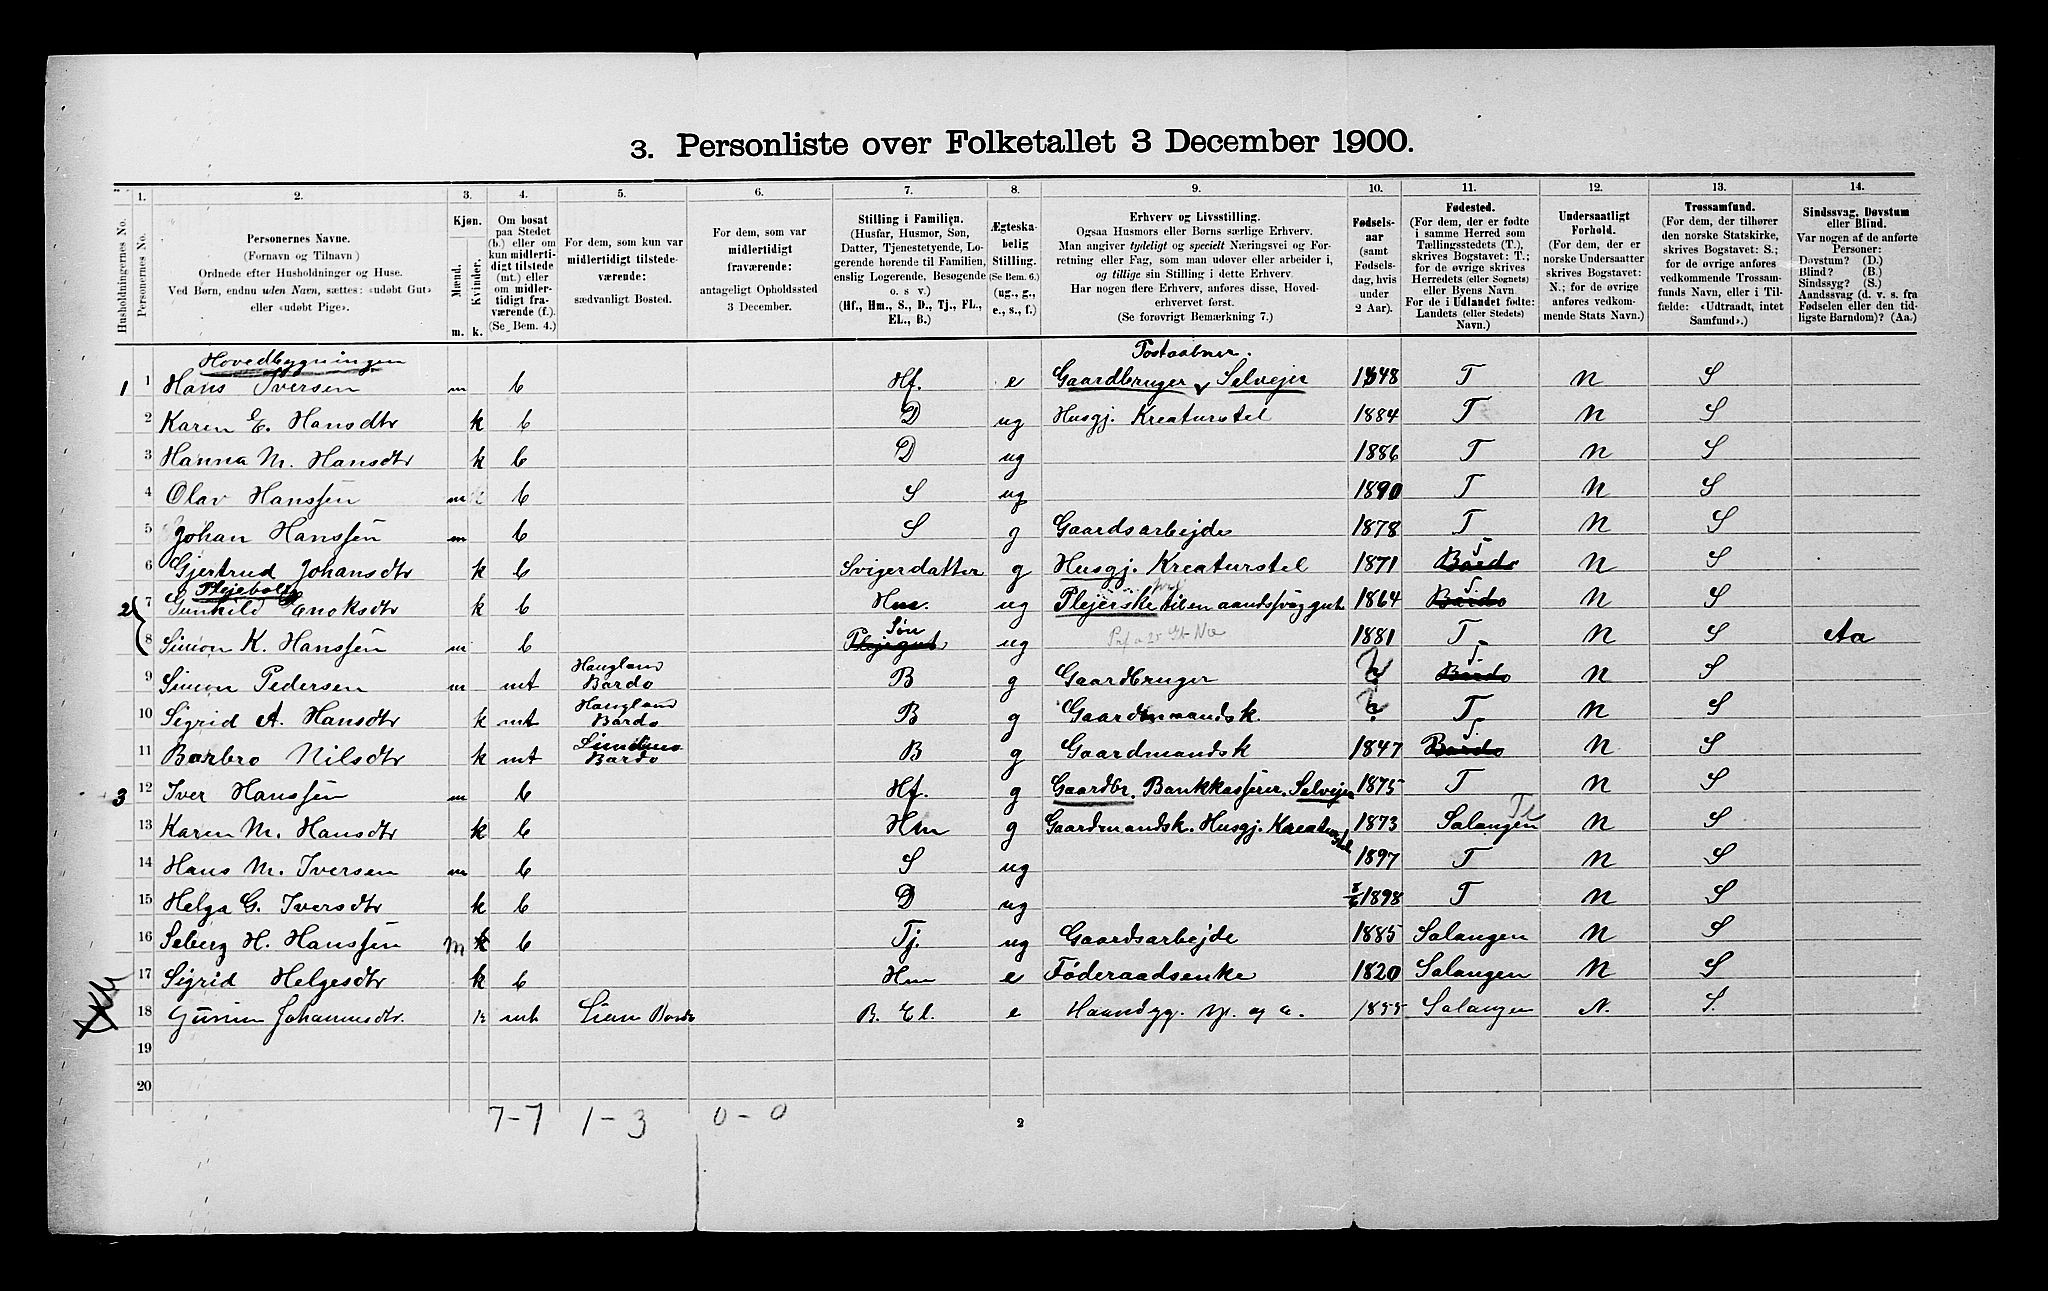 3. Personliste over Folketallet 3 December 1900.
1. 2. 3. 4. 5. 6. 7. 8. 9. 10. 11. 12. 13. 14.
Husholdningernes No.
Personernes No.
Personernes Navne.
(Fornavn og Tilnavn)
Ordnede efter Husholdninger og Huse.
Ved Børn, endnu uden Navn, sættes: «udøbt Gut»
eller «udøbt Pige».
Kjøn.
Mænd. Kvinder.
m. k.
Om bosat
paa Stedet
(b.) eller om
kun midlerti-
digt tilstede
(mt.) eller
om midler-
tidigt fra-
værende (f.).
(Se Bem. 4.)
For dem, som kun var
midlertidigt tilstede-
værende:
sædvanligt Bosted.
For dem, som var
midlertidigt
fraværende:
antageligt Opholdssted
3 December.
Stilling i Familien.
(Husfar, Husmor, Søn,
Datter, Tjenestetyende, Lo-
gerende hørende til Familien,
enslig Logerende, Besøgende
o. s v.)
(Hf., Hm., S., D., Tj., FL.,
EL., B.)
Ægteska-
belig
Stilling.
(Se Bem. 6.)
(ug., g.,
e., s., f.)
Erhverv og Livsstilling.
Ogsaa Husmors eller Børns særlige Erhverv.
Man angiver tydeligt og specielt Næringsvei og For-
retning eller Fag, som man udøver eller arbeider i,
og tillige sin Stilling i dette Erhverv.
Har nogen flere Erhverv, anføres disse, Hoved-
erhvervet først.
(Se forøvrigt Bemærkning 7.)
Fødsels-
aar
(samt
Fødsels-
dag, hvis
under
2 Aar).
Fødested.
(For dem, der er fødte
i samme Herred som
Tællingsstedets (T.),
skrives Bogstavet: T.;
for de øvrige skrives
Herredets (eller Sognets)
eller Byens Navn
For de i Udlandet fødte:
Landets (eller Stedets)
Navn.)
Undersaatligt
Forhold.
(For dem, der er
norske Undersaatter
skrives Bogstavet:
N.; for de øvrige
anføres vedkom-
mende Stats Navn.)
Trossamfund.
(For dem, der tilhører
den norske Statskirke,
skrives Bogstavet: S.;
for de øvrige anføres
vedkommende Trossam-
funds Navn, eller i Til-
fælde: «Udtraadt, intet
Samfund».)
Sindssvag, Døvstum
eller Blind.
Var nogen af de anførte
Personer:
Døvstum? (D.)
Blind? (B.)
Sindssyg? (S.)
Aandssvag (d. v. s. fra
Fødselen eller den tid-
ligste Barndom)? (Aa.)
Hovedbygningen Postaabner.
1 1 Hans Iversen m b Hf. e Gaardbruger Selvejer 1848 T N S
2 Karen E. Hansdtr k b D ug Husgj. Kreaturstel 1884 T N S
3 Hanna M. Hansdtr k b D ug 1886 T N S
4 Olav Hanssen m b S ug 1890 T N S
5 Johan Hanssen m b S g Gaardsarbejde 1878 T N S
6 Gjertrud Johansdtr k b Svigerdatter g Husgj. Kreaturstel 1871 Bardo T N S
Plejebolig
2 7 Gunhild Enoksdtr k b Hm. ug Plejerske til en aandssvag gut 1864 Bardo T. N S
8 Simon K. Hanssen m b Plejegut Søn ug 1881 T N S Aa
9 Simon Pedersen m mt Haugland Bardo B g Gaardbruger ? Bardo T N S
10 Sigrid A. Hansdtr k mt Haugland Bardo B g Gaardmandsk. ? T N S
11 Barbro Nilsdtr k mt Bardo B g Gaardmandsk 1847 Bardo T. N S
3 12 Iver Hanssen m b Hf. g Gaardbr. Bankkasserer. Selvejer 1875 T N S
13 Karen M. Hansdtr k b Hm g Gaardmandsk. Husgj. Kreaturstel 1873 Salangen N S
14 Hans M. Iversen m b S ug 1897 T N S
15 Helga G. Iversdtr k b D ug 1898 T N S
16 H. Hanssen m b Tj. ug Gaardsarbejde 1885 Salangen N S
17 Sigrid Helgesdtr k b Hm e Føderaadsenke 1820 Salangen N S
18 Johannesdtr. k mt Lien Bardo B. El. e 1855 Salangen N. S.
19
20
7-7 1-3 0-0
2